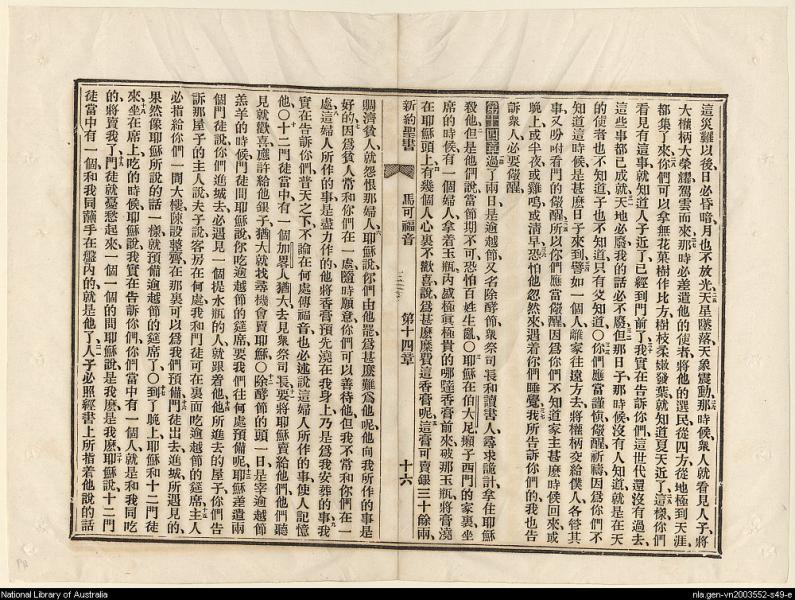 這災難以後日必昏暗月也不放光天星墜落天象震動那時候衆人就看見人子將
大權柄大榮耀駕雲而來那時必差遣他的使者將他的選民從四方從地極到天涯
都集了來你們可以拿無花菓樹作比方樹枝柔嫩發葉就知道夏天近了這樣你們
看見有這事就知道人子近了已經到門前了我實在告訴你們這世代還沒有過去
這些事都已成就天地必廢我的話必不廢但那日子那時候沒有人知道就是在天
的使者也不知道子也不知道只有父知道〇你們應當謹愼儆醒祈禱因爲你們不
知道這時候是甚麽日子來到譬如一個人離家往遠方去將權柄交給僕人各管其
事又吩咐看門的儆醒所以你們應當儆醒因爲你們不知道家主甚麽時候回來或
晚上或半夜或雞鳴或清早恐怕他忽然來遇着你們睡覺我所告訴你們的我也告
訴衆人必要儆醒
過了兩日是逾越節又名除酵節衆祭司長和讀書人尋求詭計拿住耶穌
殺他但是他們說當節期不可恐怕百姓生亂〇耶穌在伯大尼癩子西門的家裏坐
席的時候有一個婦人拿着玉瓶內盛極眞極貴的哪噠香膏前來破那玉瓶將膏澆
在耶穌頭上有幾個人心裏不歡喜說爲甚麽糜費這香膏呢這膏可賣銀三十餘兩
新約聖書 馬可福音 第十四章 十六
賙濟貧人就怨恨那婦人耶穌說你們由他罷爲甚麽難爲他呢他向我所作的事是
好的因爲貧人常和你們在一處隨時願意你們可以善待他但我不常和你們在一
處這婦人所作的事是盡力作的他將香膏預先澆在我身上乃是爲我安葬的事我
實在告訴你們普天之下不論在何處傳福音也必述說這婦人所作的事使人記憶
他〇十二門徒當中有一個加畧人猶大去見衆祭司長要將耶穌賣給他們他們聽
見就歡喜應許給他銀子猶大就找尋機會賣耶穌〇除酵節的頭一日是宰逾越節
羔羊的時候門徒問耶穌說你吃逾越節的筵席要我們往何處預備呢耶穌差遣兩
個門徒說你們進城去必遇見一個提水瓶的人就跟着他他所進去的屋子你們告
訴那屋子的主人說夫子說客房在何處我和門徒可在裏面吃逾越節的筵席主人
必指給你們一間大樓陳設整齊在那裏可以爲我們預備門徒出去進城所遇見的
果然像耶穌所說的話一樣就預備逾越節的筵席了〇到了晚上耶穌和十二門徒
來坐在席上吃的時候耶穌說我實在告訴你們你們當中有一個人就是和我同吃
的將賣我了門徒就憂愁起來一個一個的問耶穌說是我麽是我麽耶穌說十二門
徒當中有一個和我同蘸手在盤內的就是他了人子必照經書上所指着他說的話
National Library of Australia
nla.gen-vn2003552-s49-e